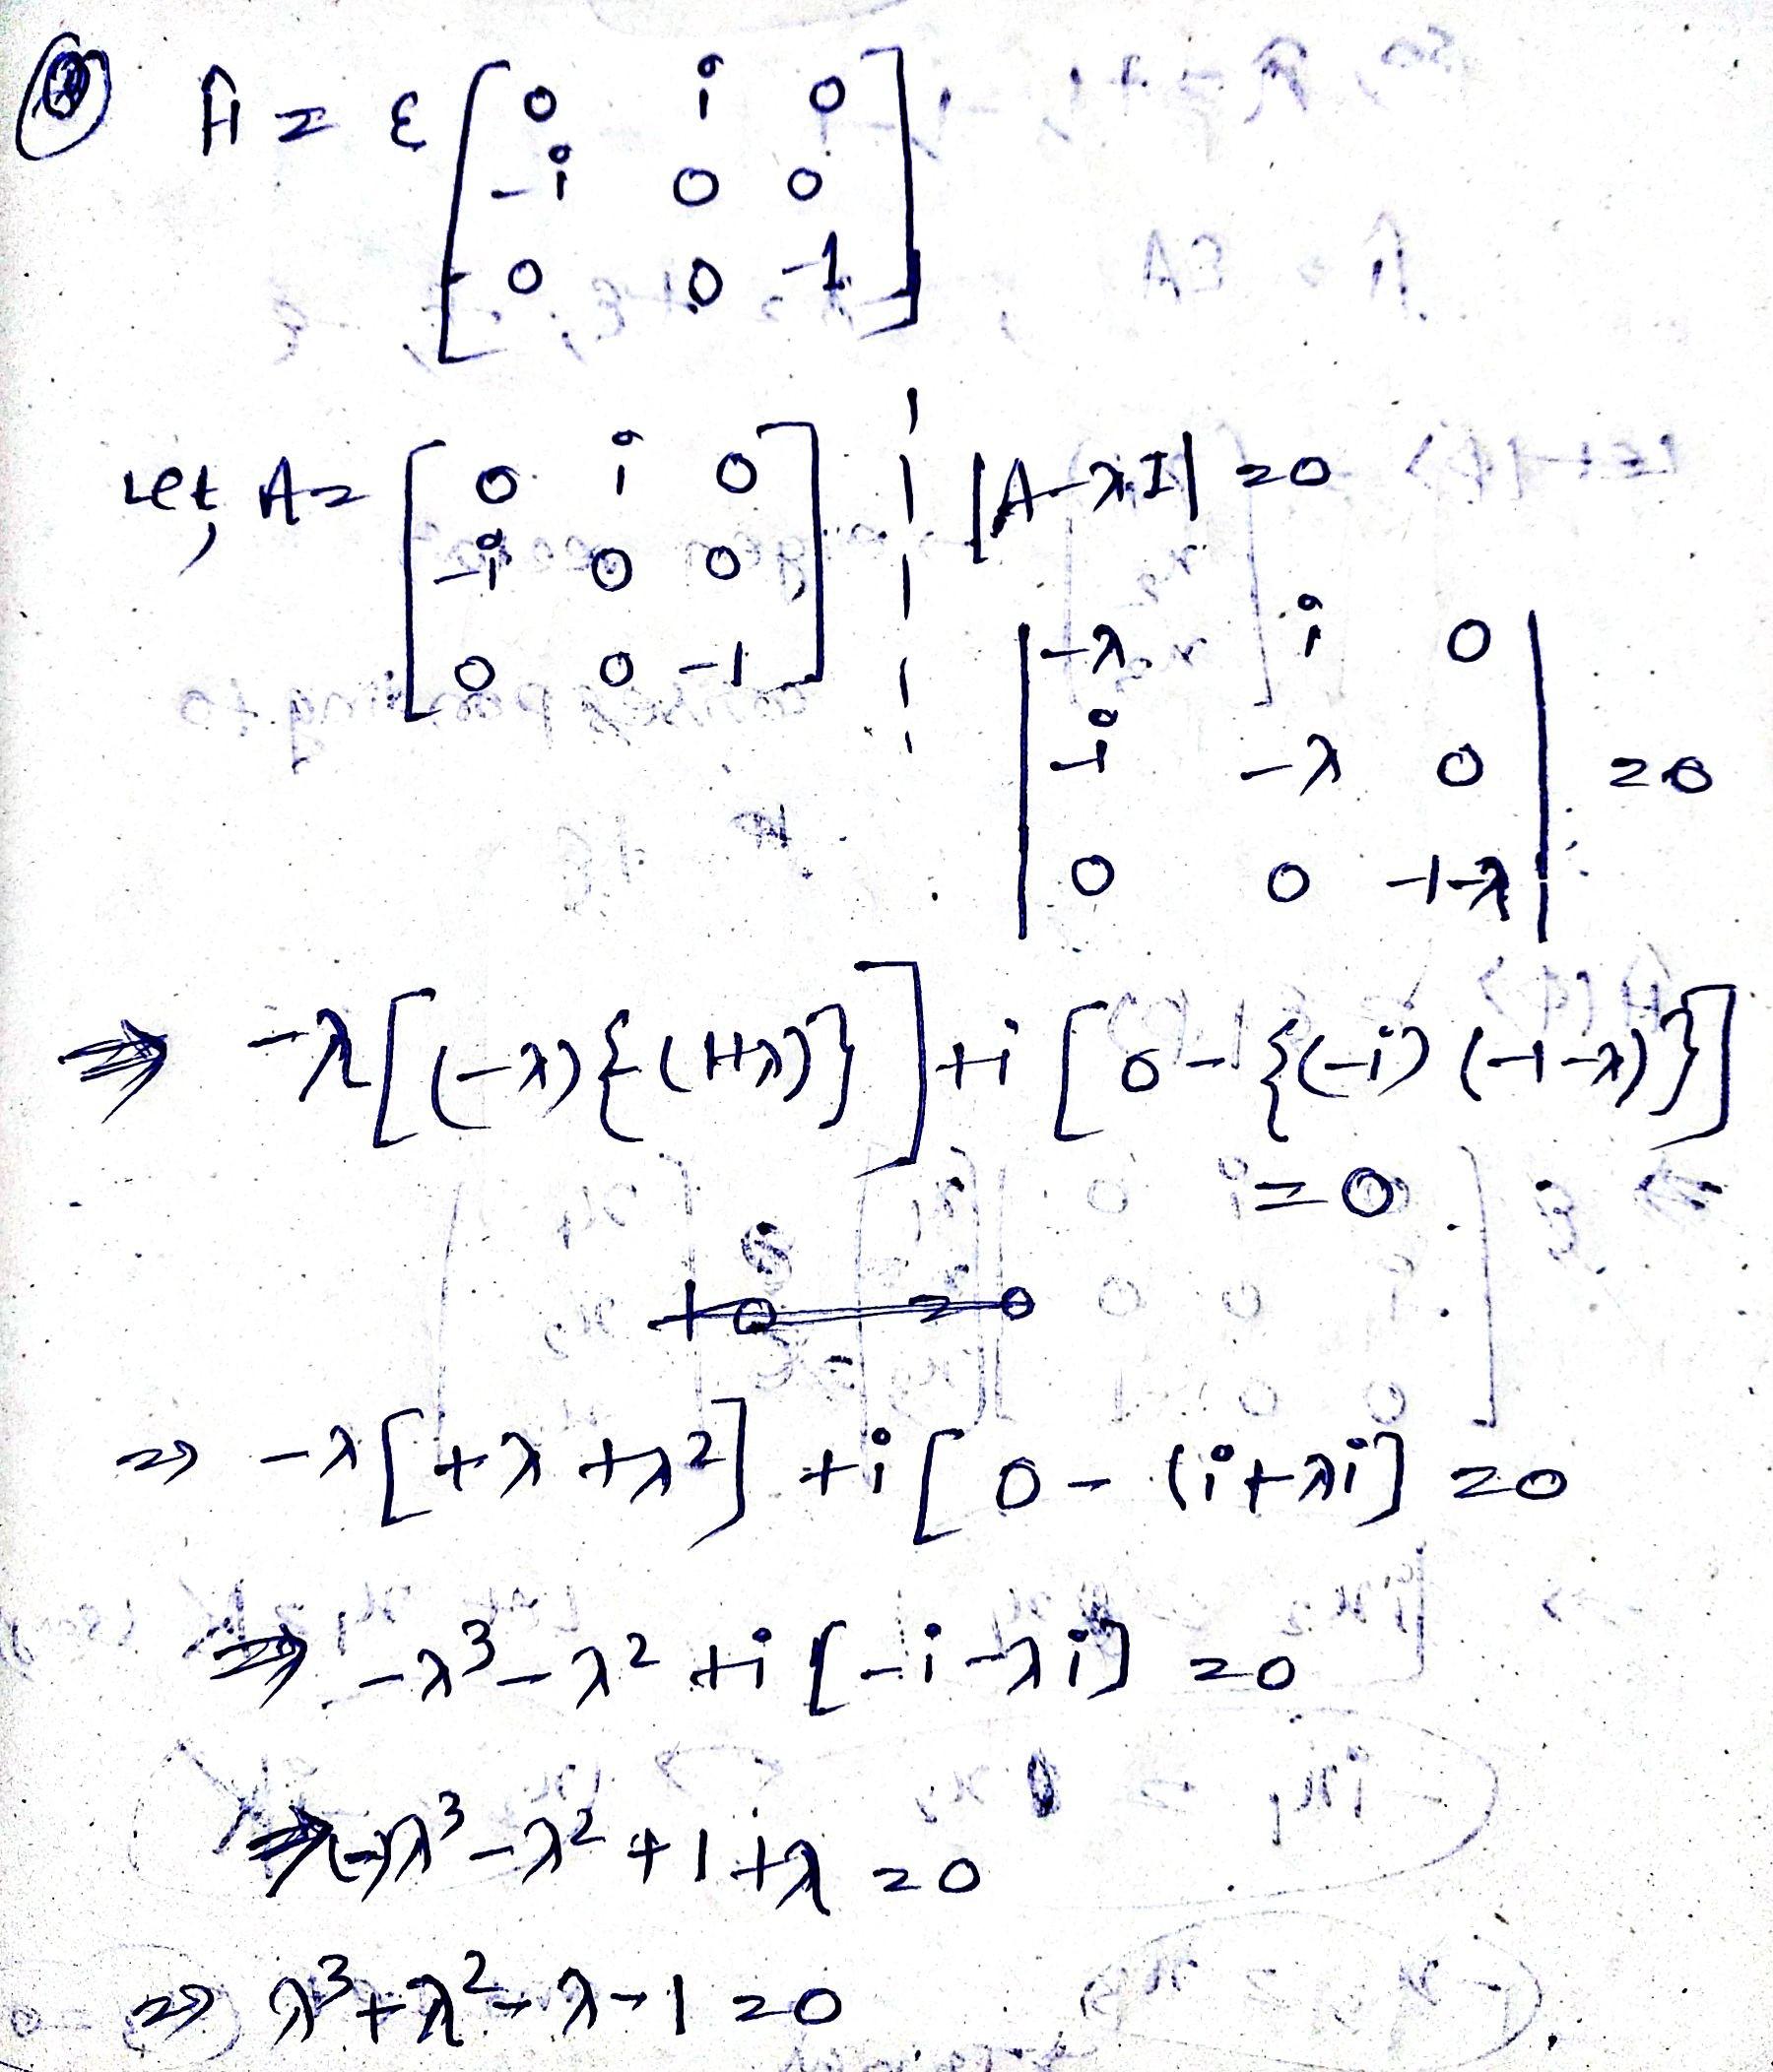 Ĥ = ε [ 0 i 0
-i 0 0
0 0 -1 ]
Let, A = [ 0 i 0
-i 0 0
0 0 -1 ]
|A-λI| = 0
| -λ i 0
-i -λ 0
0 0 -1-λ | = 0
⇒ -λ[(-λ){-(1+λ)}] + i[0-{(-i)(-1-λ)}]
= 0
⇒ -λ[+λ+λ²] + i[0-(i+λi] = 0
⇒ -λ³-λ²+i[-i-λi] = 0
⇒ (-)λ³-λ²+1+λ = 0
⇒ λ³+λ²-λ-1 = 0